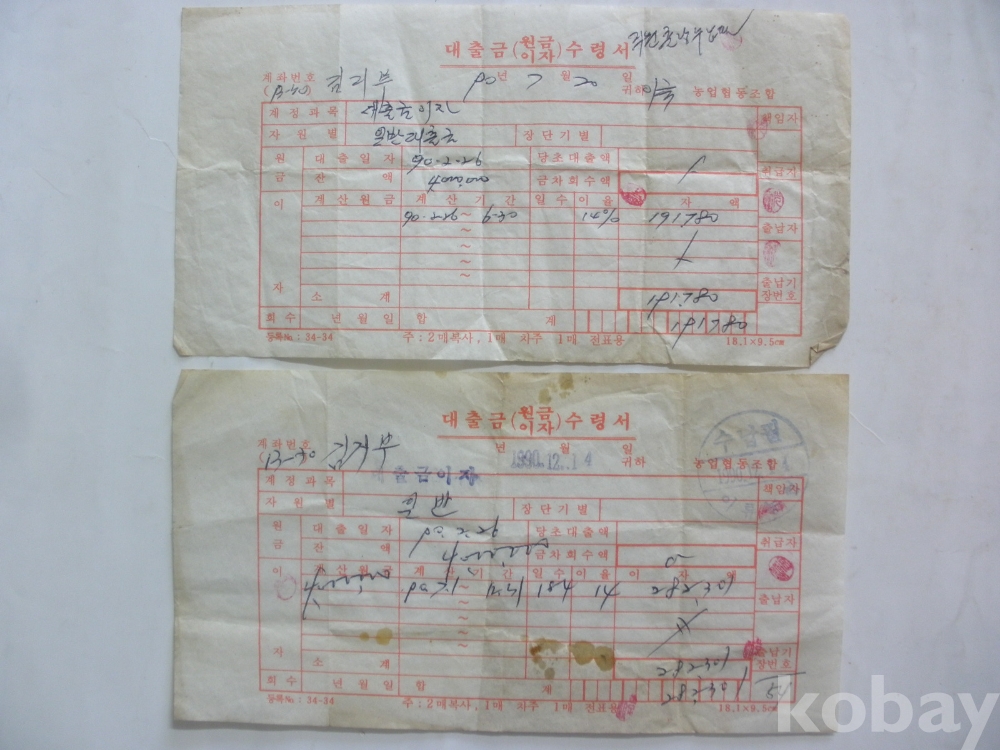 대출금(원금이자)수령서
계좌번호 년 월 일
(13-30) 김기부 90 7 20 귀하 농업협동조합
계정과목 대출금이자 책임자
자원별 일반대출금 장단기별
원 대출일자 90.2.26 당초대출액 취급기
금 잔액 4,000,000 금차회수액
이 계산원금 계산기간 일수 이율 자액
90.2.26 ~ 6.30 14% 191,780 출납자
~
~
~
자 소계 191,780 출납기장번호
회수 년월일 합계 191,780
등록№ : 34-34 주 : 2매복사, 1매 차주 1매 전표용 18.1×9.5㎝
대출금(원금이자)수령서
계좌번호 년 월 일
(13-30 김기부 1990.12.14 귀하 농업협동조합
수납필
계정과목 대출금이자 책임자
자원별 일반 장단기별
원 대출일자 90.2.26 당초대출액 취급자
금 잔액 4,000,000 금차회수액
이 계산원금 계산기간 일수 이율 이자액
4,000,000 90.7.1 ~ 12.31 184 14 282,301 출납자
~
~
~
자 소계 282301 출납기장번호
회수 년월일 합계 282301 51
등록№ : 34-34 주 : 2매복사, 1매 차주 1매 전표용 18.1×9.5㎝
kobay